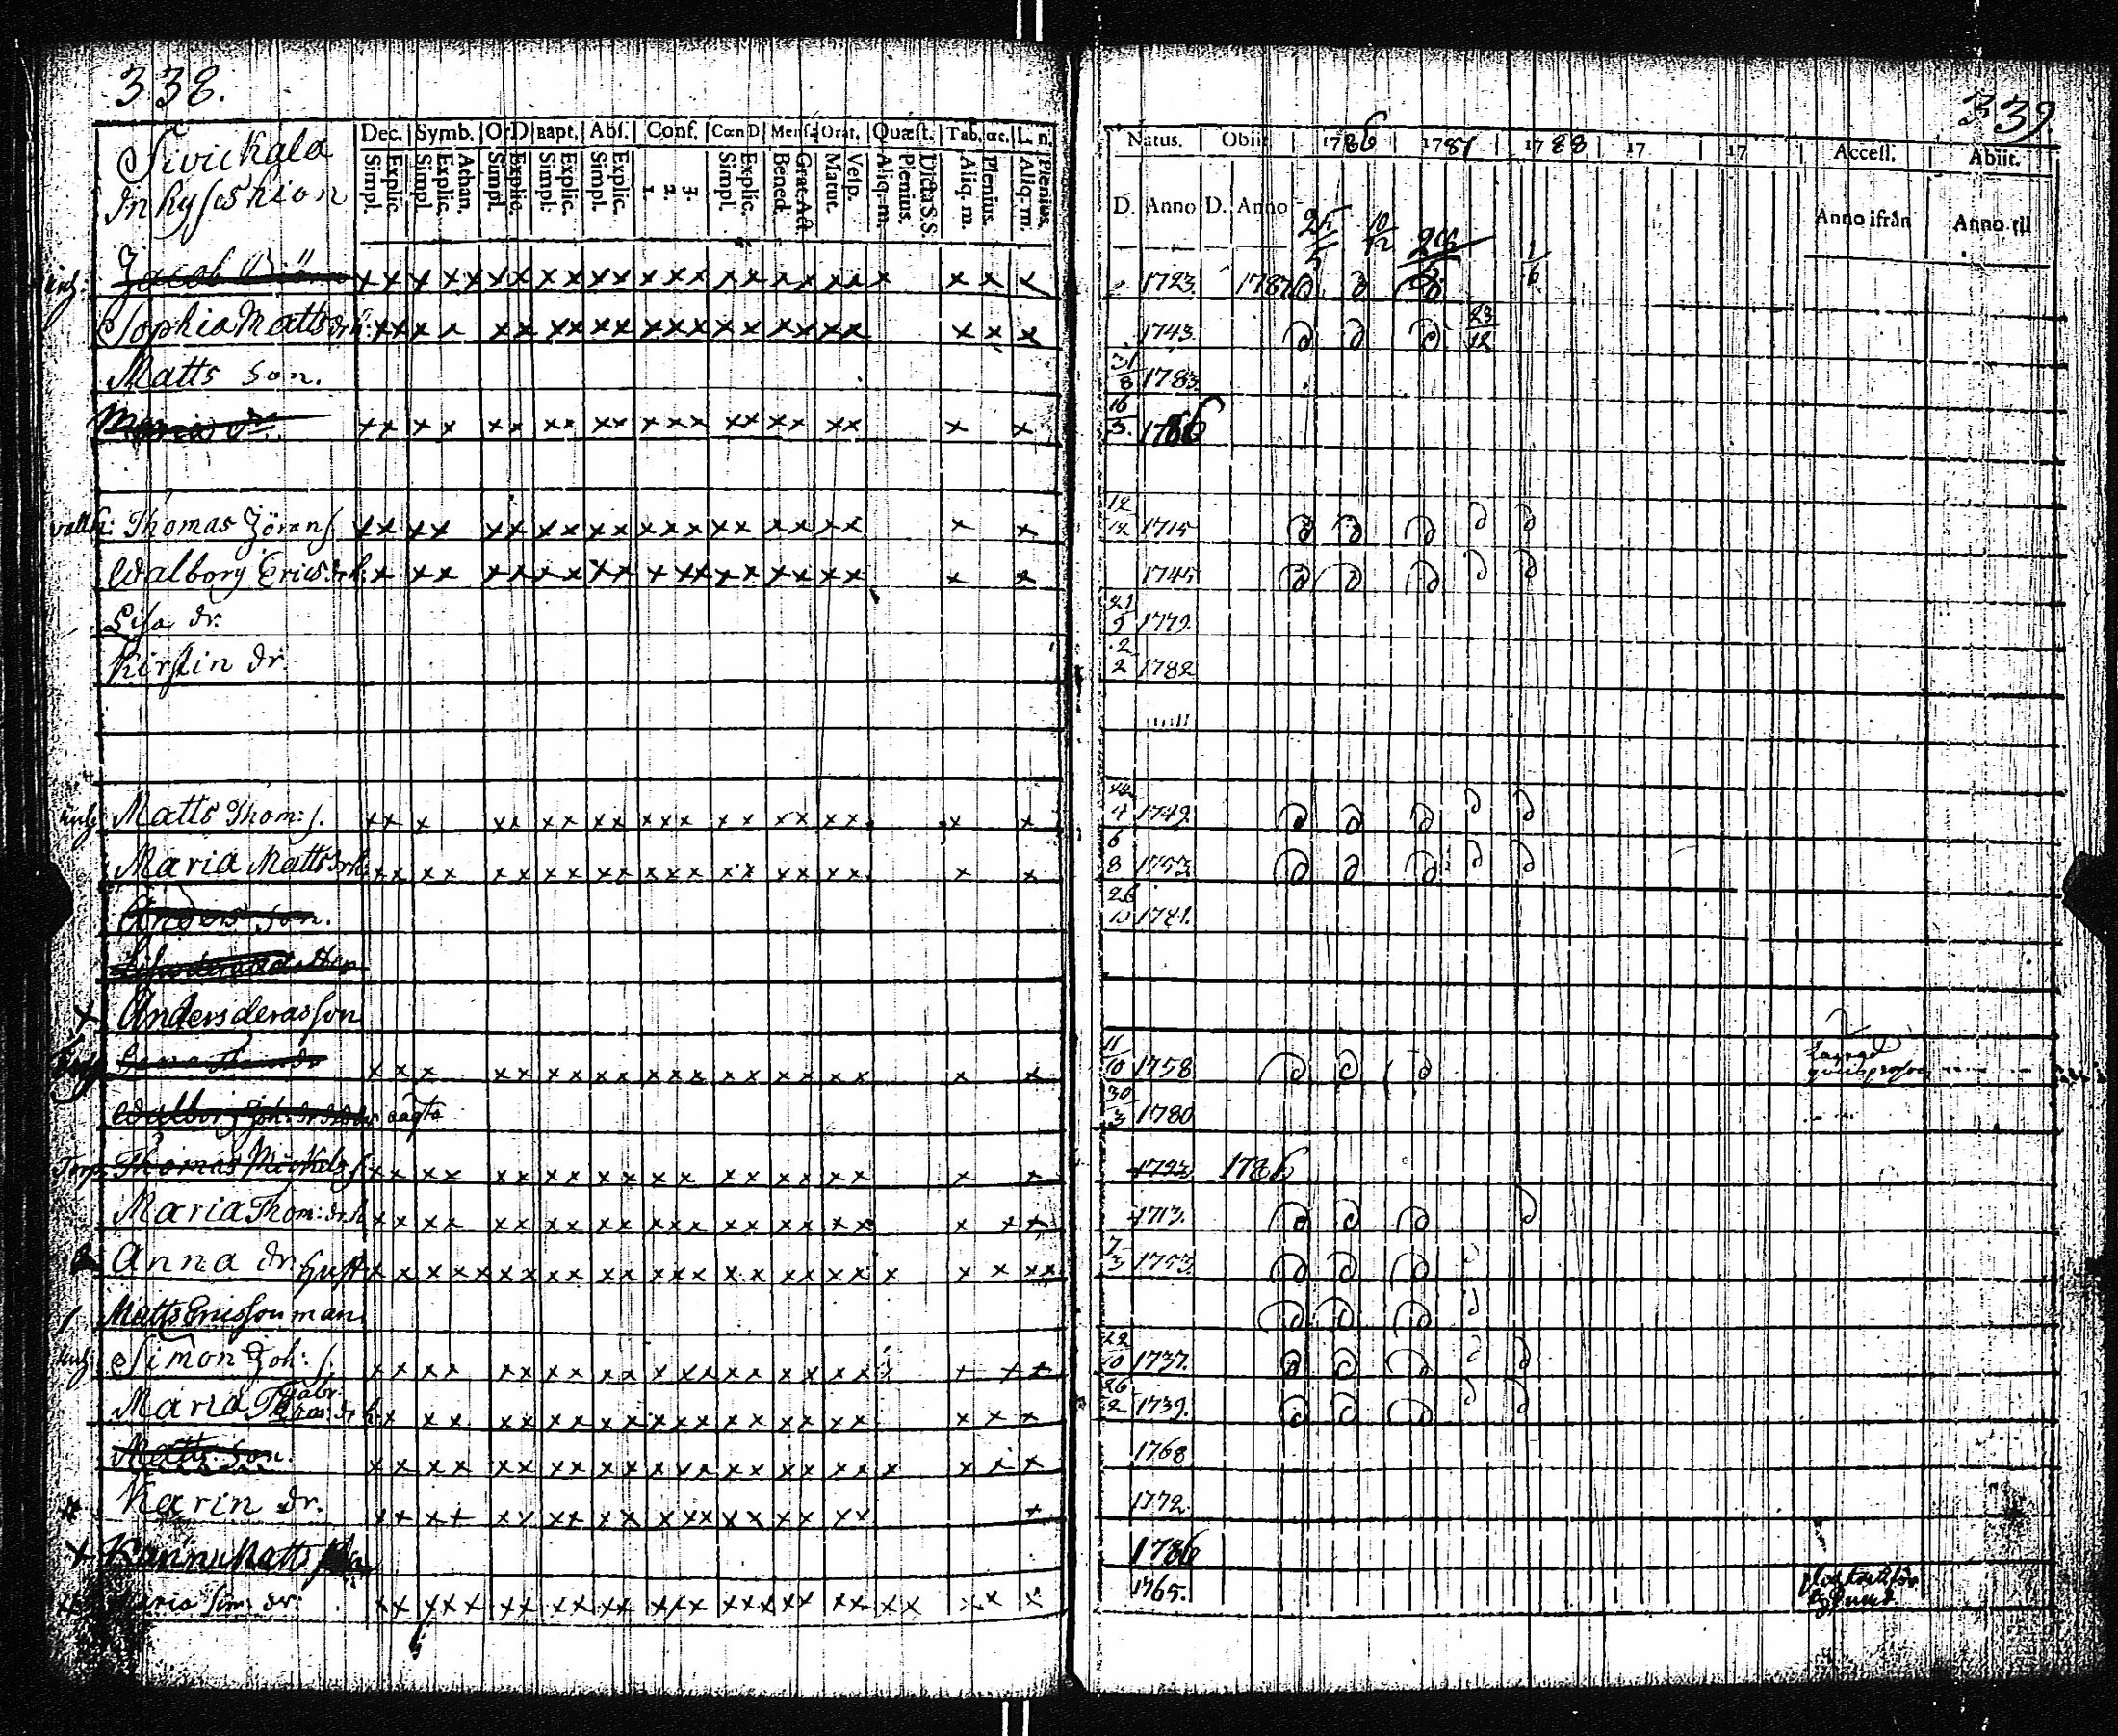 338.
339.
Sivickala
Inhyseshion
Dec. Symb. Or.D Bapt. Abs. Conf. Cœn D Mensæ Orat. Quæst. Tab. œc. L. n.
Simpl. Explic. Simpl. Explic. Athan. Simpl. Explic. Simpl. Explic. Simpl. Explic. 1. 2. 3. Simpl. Explic. Bened. Grat. Act Matut. Vesp. Aliq. m. Plenius. Dicta S.S. Aliq. m. Plenius. Aliq. m. Plenius.
Natus. Obiit 1786 1787 1788 17 17 Access. Abiit.
D. Anno D. Anno Anno ifrån Anno til
25/5 10/12 1/6
Jacob 1723 1787
Sophia Matts dr h. 1743. 23/12
Matts son. 31/8 1783
Maria dr. 16/3 1786
Thomas Jörans. 12/12 1715
Walborg Erics dr h. 1745
Lisa dr. 21/9 1779.
Kirstin dr 2/2 1782
Matts Thom: s. 4 1749.
Maria Matts dr h. 6/8 1753.
Anders son. 26/10 1781.
Anders deras son
11/10 1758
Walborg Joh. dr 30/3 1780
Torp. Thomas Mickels s. 1723. 1786
Maria Thom: dr h 1713.
Anna dr. hust 7/3 1753.
Matts Ericsson man
Simon Joh: s. 22/10 1737.
Maria Gabr: dr h. 26/2 1739.
Matts son. 1768
Karin dr. 1772.
Matts 1786
Maria Sim: dr: 1765.